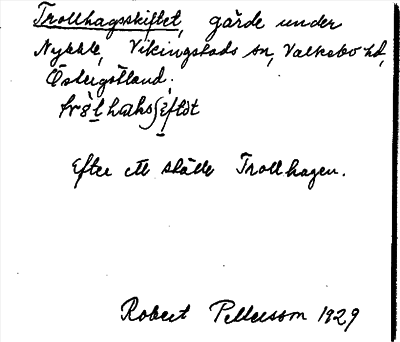 Trollhagsskiftet, gärde under
Nykkle, Vikingstads sn, Valkebo hd,
Östergötland.
Efter ett ställe Trollhagen.
Robert Pettersson 1929